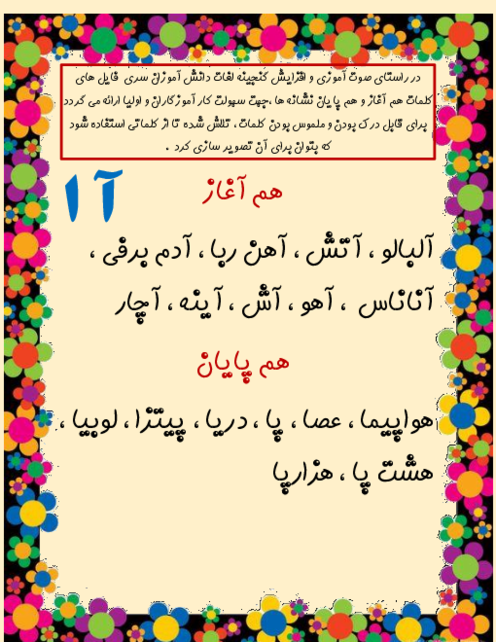 در راستای صوت آموزی و افزایش گنجینه لغات دانش آموزان سری فایل های
کلمات هم آغاز و هم پایان نشانه ها ،جهت سهولت کار آموزگاران و اولیا ارائه می گردد
برای قابل درک بودن و ملموس بودن کلمات ، تلاش شده تا از کلماتی استفاده شود
که بتوان برای آن تصویر سازی کرد .
آ ا
هم آغاز
آلبالو ، آتش ، آهن ربا ، آدم برفی ،
آناناس ، آهو ، آش ، آینه ، آچار
هم پایان
هواپیما ، عصا ، پا ، دریا ، پیتزا ، لوبیا ،
هشت پا ، هزارپا